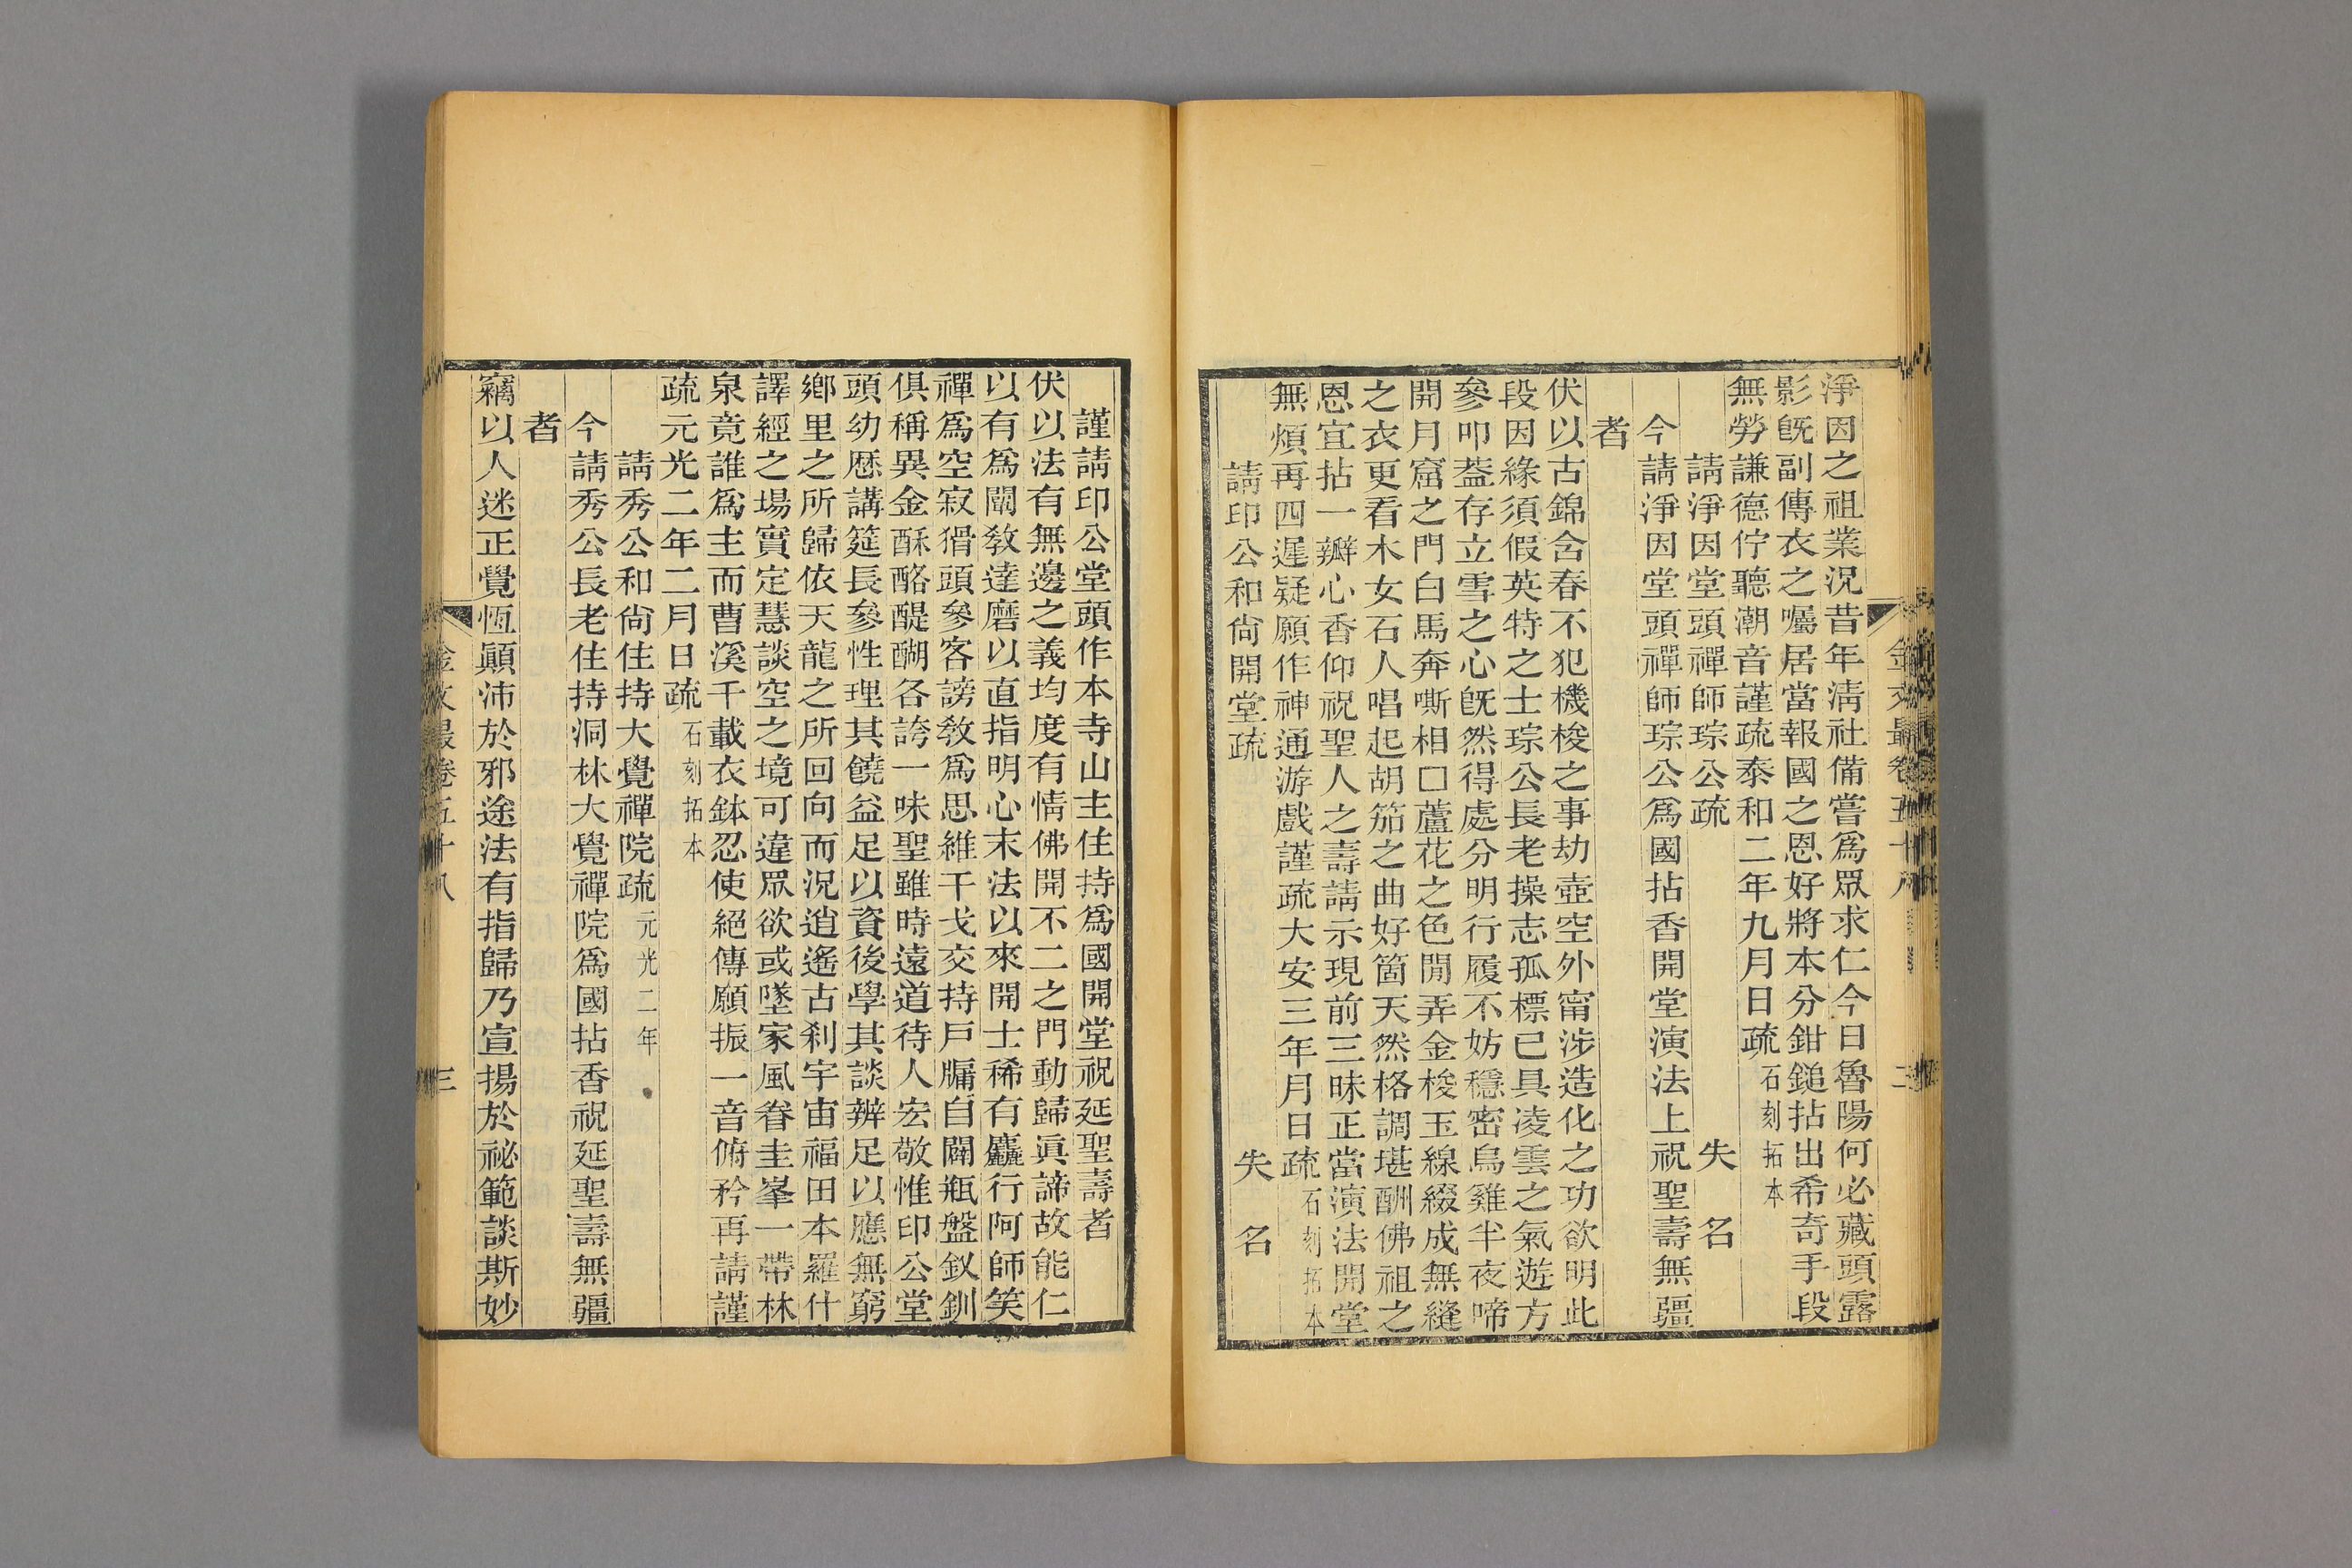 淨因之祖業況昔年淸社備嘗爲眾求仁今日魯陽何必藏頭露
影旣副傳衣之囑居當報國之恩好將本分鉗鎚拈出希奇手段
無勞謙德佇聽潮音謹疏泰和二年九月日疏石刻拓本
請淨因堂頭禪師琮公疏 失名
今請淨因堂頭禪師琮公爲國拈香開堂演法上祝聖壽無疆
者
伏以古錦含春不犯機梭之事劫壺空外甯涉造化之功欲明此
段因緣須假英特之士琮公長老操志孤標已具凌雲之氣遊方
參叩葢存立雪之心旣然得處分明行履不妨穩密烏雞半夜啼
開月窟之門白馬奔嘶相口蘆花之色閒弄金梭玉線綴成無縫
之衣更看木女石人唱起胡笳之曲好箇天然格調堪酬佛祖之
恩宜拈一瓣心香仰祝聖人之壽請示現前三昧正當演法開堂
無煩再四遲疑願作神通游戲謹疏大安三年月日疏石刻拓本
請印公和尙開堂疏 失名
金文最卷五十八 二
謹請印公堂頭作本寺山主住持爲國開堂祝延聖壽者
伏以法有無邊之義均度有情佛開不二之門動歸眞諦故能仁
以有爲闡敎達磨以直指明心末法以來開士稀有麤行阿師笑
禪爲空寂猾頭參客謗敎爲思維干戈交持戶牖自闢瓶盤釵釧
俱稱異金酥酪醍醐各誇一味聖雖時遠道待人宏敬惟印公堂
頭幼歷講筵長參性理其饒益足以資後學其談辨足以應無窮
鄉里之所歸依天龍之所回向而況逍遙古刹宇宙福田本羅什
譯經之場實定慧談空之境可違眾欲或墜家風眷圭峯一帶林
泉竟誰爲主而曹溪千載衣鉢忍使絕傳願振一音俯矜再請謹
疏元光二年二月日疏石刻拓本
請秀公和尙住持大覺禪院疏元光二年
今請秀公長老住持洞林大覺禪院爲國拈香祝延聖壽無疆
者
竊以人迷正覺恆顚沛於邪途法有指歸乃宣揚於祕範談斯妙
金文最卷五十八 三